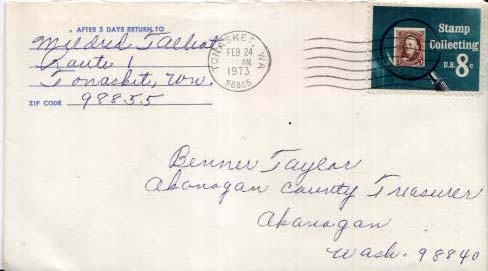 AFTER 5 DAYS RETURN TO
Mildred Talbot
Route 1
Tonasket, Wn.
ZIP CODE 98855
TONASKET, WA
FEB 24
AM
1973
98855
Stamp
Collecting
U.S. 8c
Benner Taylor
Okanogan County Treasurer
Okanogan
Wash. 98840